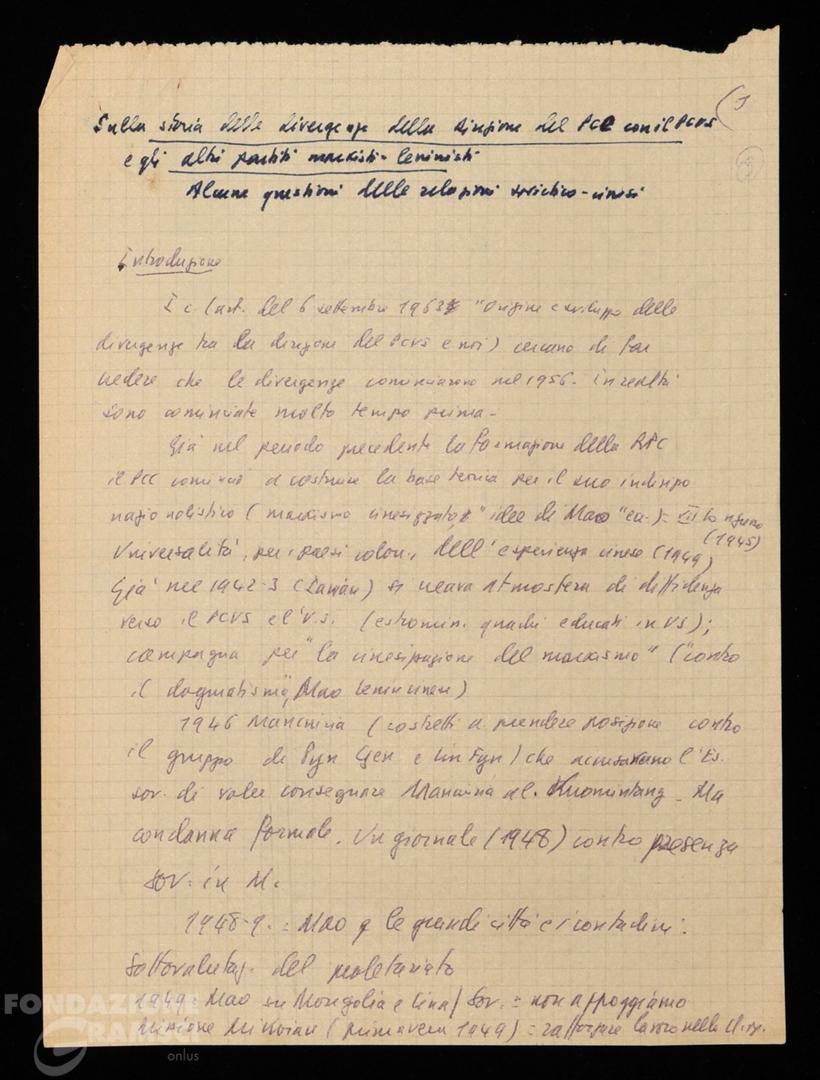 Sulla storia delle divergenze della direzione del PCC con il PCUS
e gli altri partiti marxisti-leninisti
Alcune questioni delle relazioni sovietico-cinesi
1
Introduzione
I c. (art. del 6 settembre 1963 "Origine e sviluppo delle
divergenze tra la direzione del PCUS e noi) cercano di far
vedere che le divergenze cominciarono nel 1956. In realtà
sono cominciate molto tempo prima.
Già nel periodo precedente la formazione della RPC
il PCC cominciò a costruire la base teorica per il suo indirizzo
nazionalistico (marxismo cinesizzato, "idee di Mao" ecc.) = VII Congresso
(1945)
Universalità, per i paesi colon., dell'esperienza cinese (1949)
Già nel 1942-3 si creava atmosfera di diffidenza
verso il PCUS e l'U.S. (estromin. quadri educati in US);
campagna per "la cinesizzazione del marxismo" ("contro
il dogmatismo", Mao Lenin cinese)
1946 Manciuria (costretti a prendere posizione contro
il gruppo di e Lin Fyn) che accusavano l'Es.
sov. di voler consegnare Manciuria al Kuomintang. Ma
condanna formale. Un giornale (1948) contro presenza
sov. in M.
1948-9. = Mao e le grandi città e i contadini:
sottovalutaz. del proletariato
1949: Mao su Mongolia e Cina/Sov. = non appoggiamo
Missione Mikoian (primavera 1949) = rafforzare lavoro nella cl. op.
FONDAZIONE
GRAMSCI
onlus